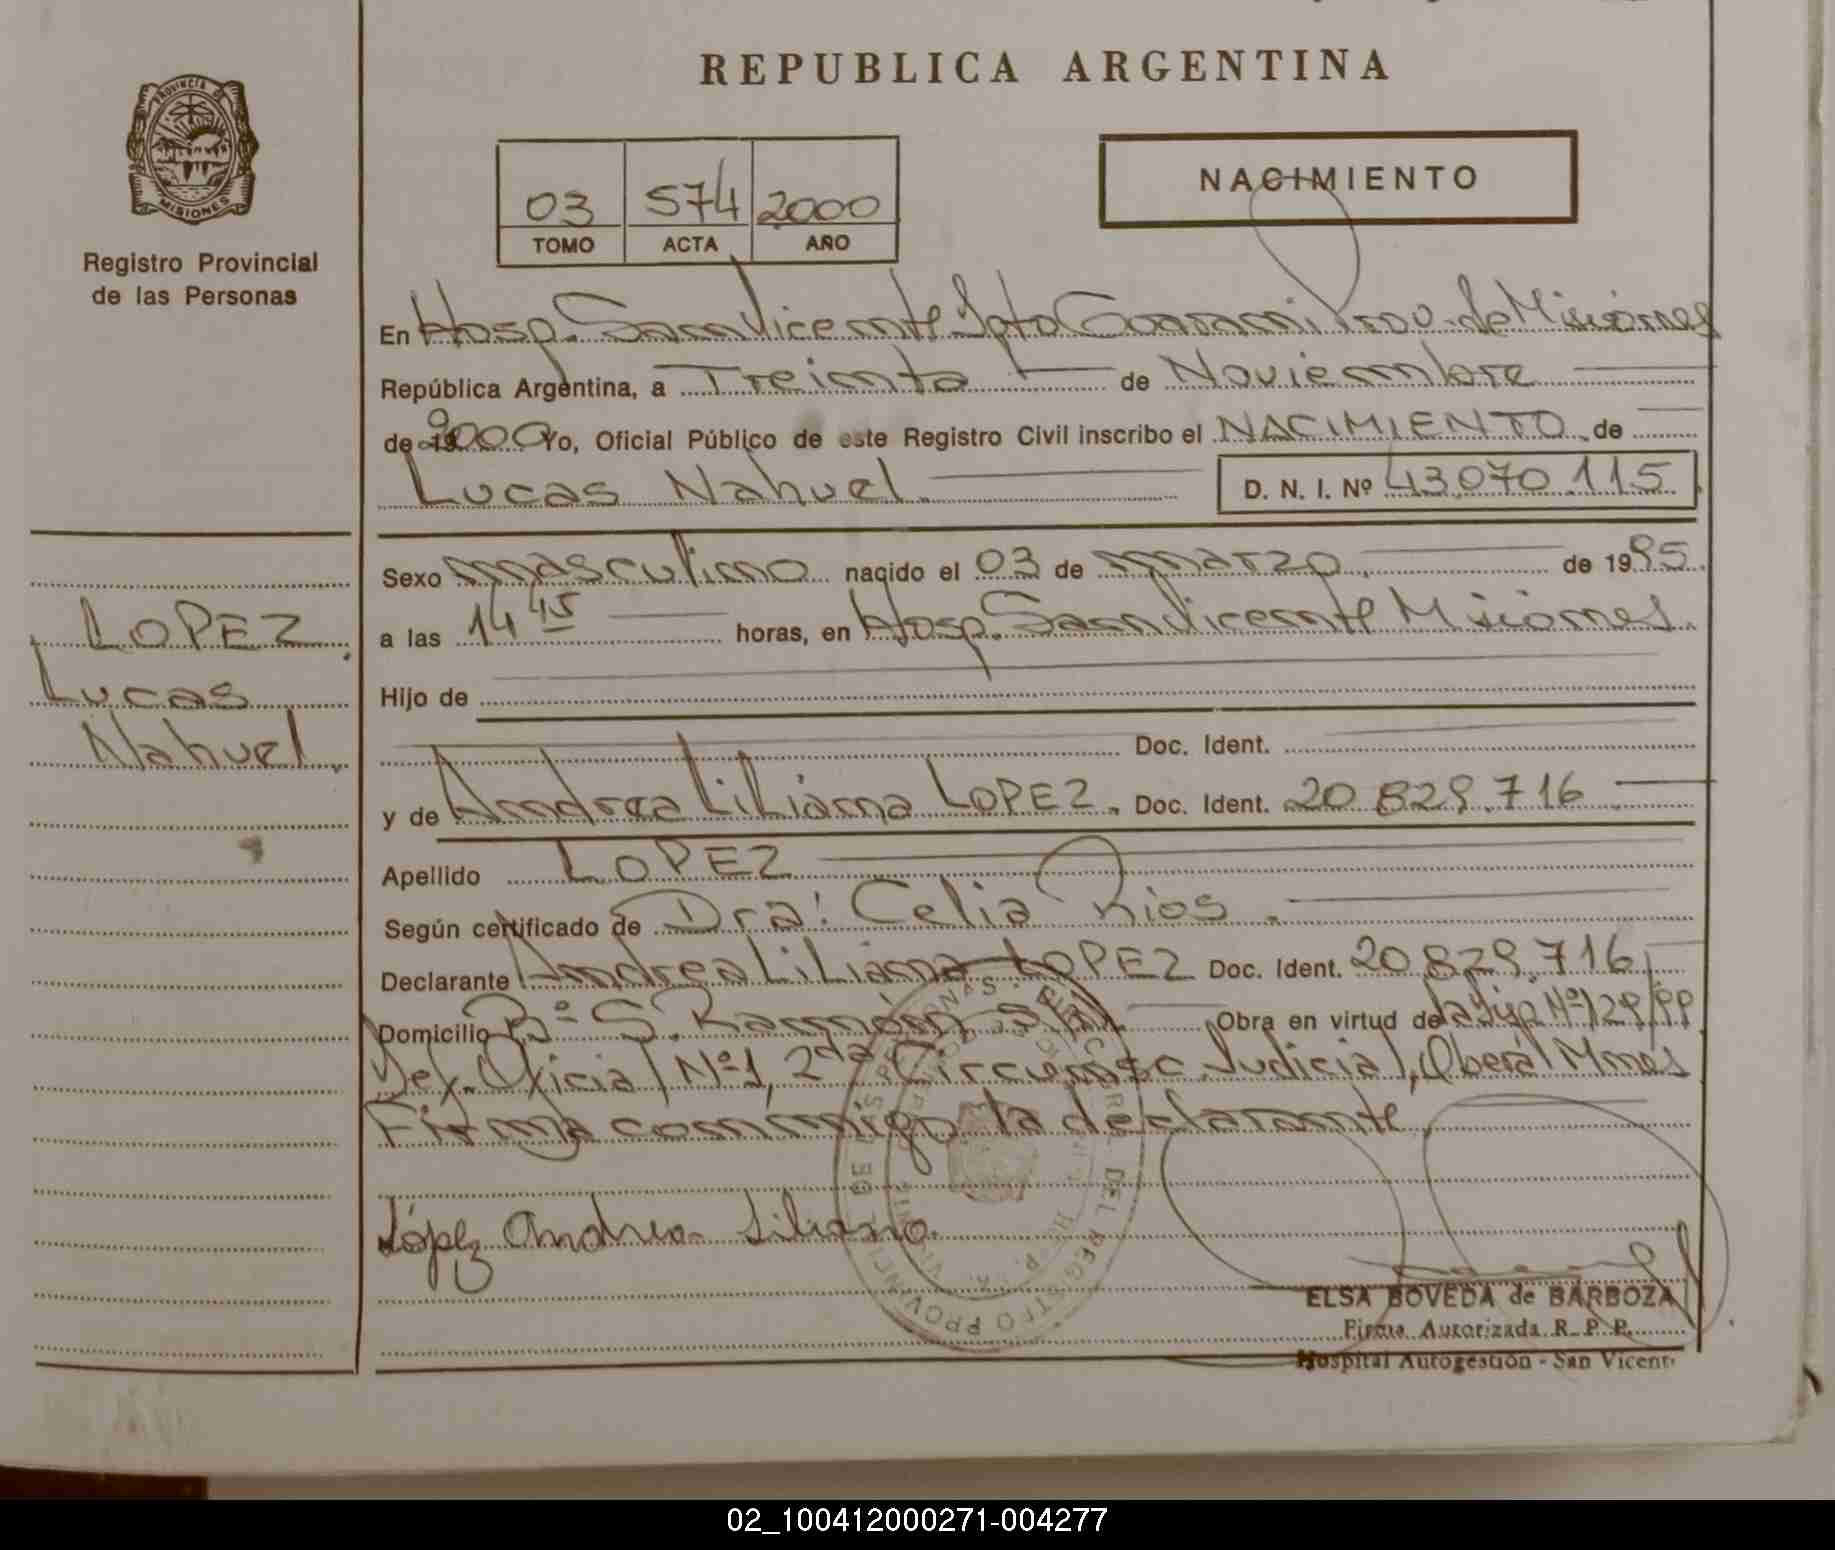 REPUBLICA ARGENTINA
PROVINCIA DE
MISIONES
Registro Provincial
de las Personas
03 574 2000
TOMO ACTA AÑO
NACIMIENTO
En Hosp. San Vicente Dpto Guarani Prov. de Misiones
República Argentina, a Treinta de Noviembre
de 2000 Yo, Oficial Público de este Registro Civil inscribo el NACIMIENTO de
Lucas Nahuel. D. N. I. Nº 43.070.115
Sexo masculino nacido el 03 de marzo de 1995
a las 14 45 horas, en Hosp. San Vicente Misiones
LOPEZ
Lucas
Nahuel
Hijo de
Doc. Ident.
y de Andrea Liliana LOPEZ. Doc. Ident. 20.829.716
Apellido LOPEZ
Según certificado de Dra: Celia Rios.
Declarante Andrea Liliana LOPEZ Doc. Ident. 20.829.716
Domicilio Bº S. Ramón Obra en virtud de Nº 129/99
Def. Oficial Nº 1, 2da Circunsc. Judicial, Oberá Mnes
Firma conmigo la declarante
López Andrea Liliana
ELSA BOVEDA de BARBOZA
Firma Autorizada R. P. P.
Hospital Autogestión - San Vicent
02_100412000271-004277